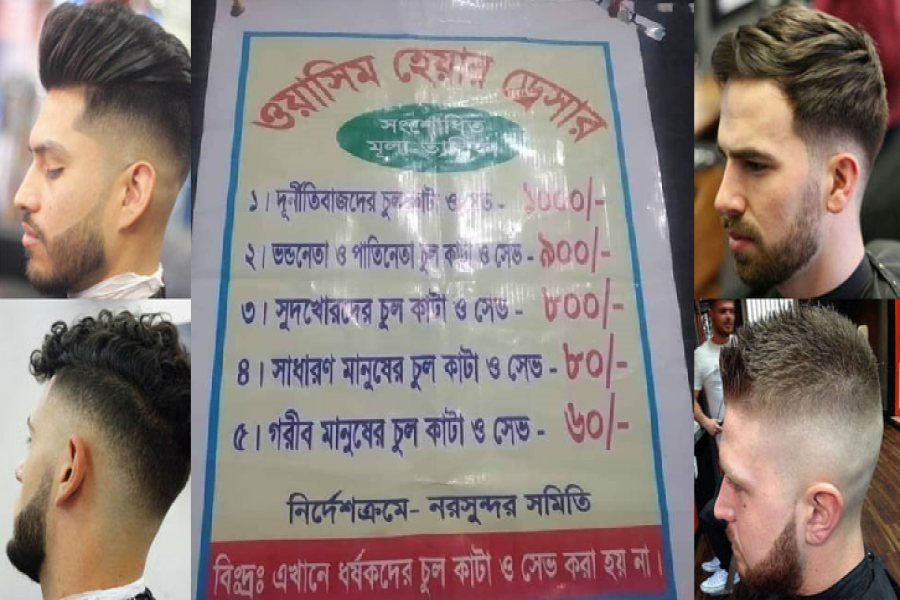 ওয়াসিম হেয়ার ড্রেসার
সংশোধিত
মূল্য তালিকা
১। দূর্নীতিবাজদের চুল কাটা ও সেভ - ১০০০/-
২। ভন্ডনেতা ও পাতিনেতা চুল কাটা ও সেভ - ৯০০/-
৩। সুদখোরদের চুল কাটা ও সেভ - ৮০০/-
৪। সাধারণ মানুষের চুল কাটা ও সেভ - ৮০/-
৫। গরীব মানুষের চুল কাটা ও সেভ - ৬০/-
নির্দেশক্রমে- নরসুন্দর সমিতি
বিঃদ্রঃ এখানে ধর্ষকদের চুল কাটা ও সেভ করা হয় না।